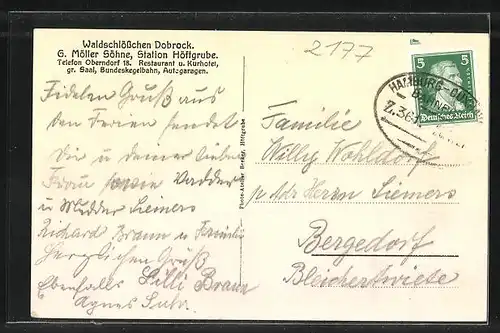 Waldschlößchen Dobrock.
G. Möller Söhne, Station Höftgrube.
Telefon Oberndorf 18. Restaurant u. Kurhotel,
gr. Saal, Bundeskegelbahn, Autogaragen.
2177
Fidelen Gruß aus
den Ferien sendet
Dir u deiner lieben
Frau sowie Vadder
u Mudder Siemers
Richard Braun u Familie
Herzlichen Gruß
Ebenfalls Lilli Braun
Agnes
Photo-Atelier Höftgrube
5 5
Deutsches Reich
HAMBURG
Z.36
Familie
Willy Wohldorf
p Adr Herrn Siemers
Bergedorf
Bleichertwiete